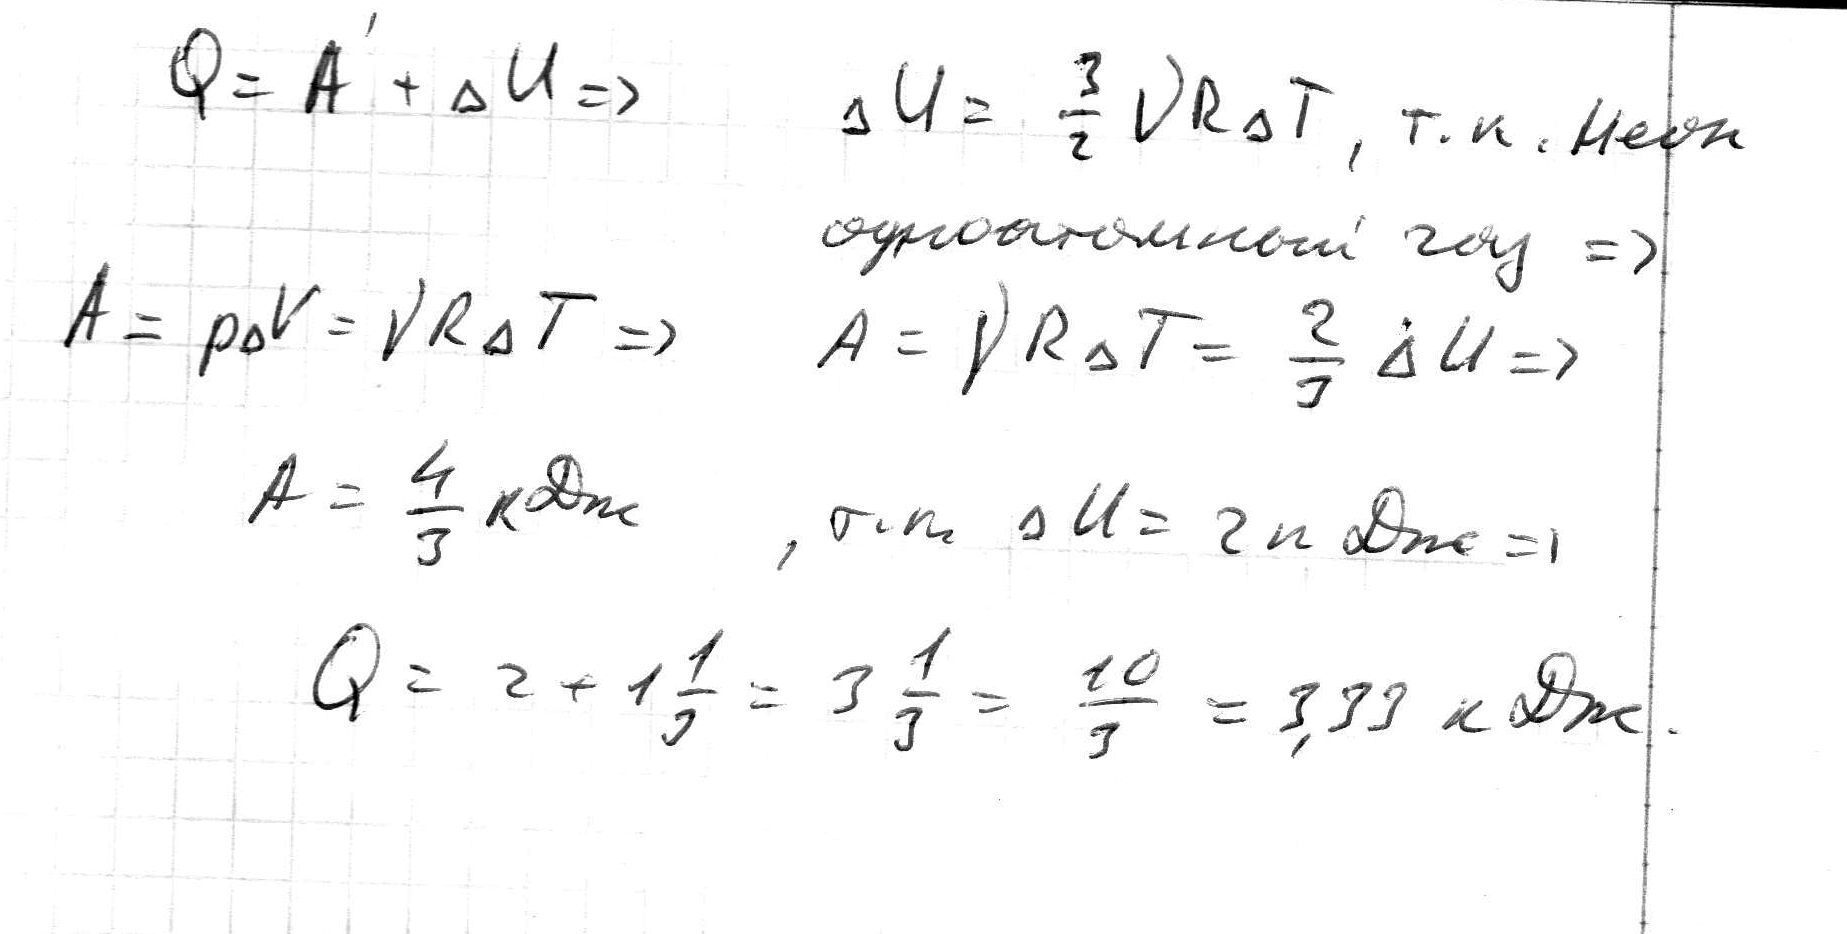 Q = A' + ΔU =>
ΔU = 3/2 νRΔT, т.к. неон
одноатомный газ =>
A = pΔV = νRΔT =>
A = νRΔT = 2/3 ΔU =>
A = 4/3 кДж , т.к. ΔU = 2кДж =>
Q = 2 + 1 1/3 = 3 1/3 = 10/3 = 3,33 кДж.